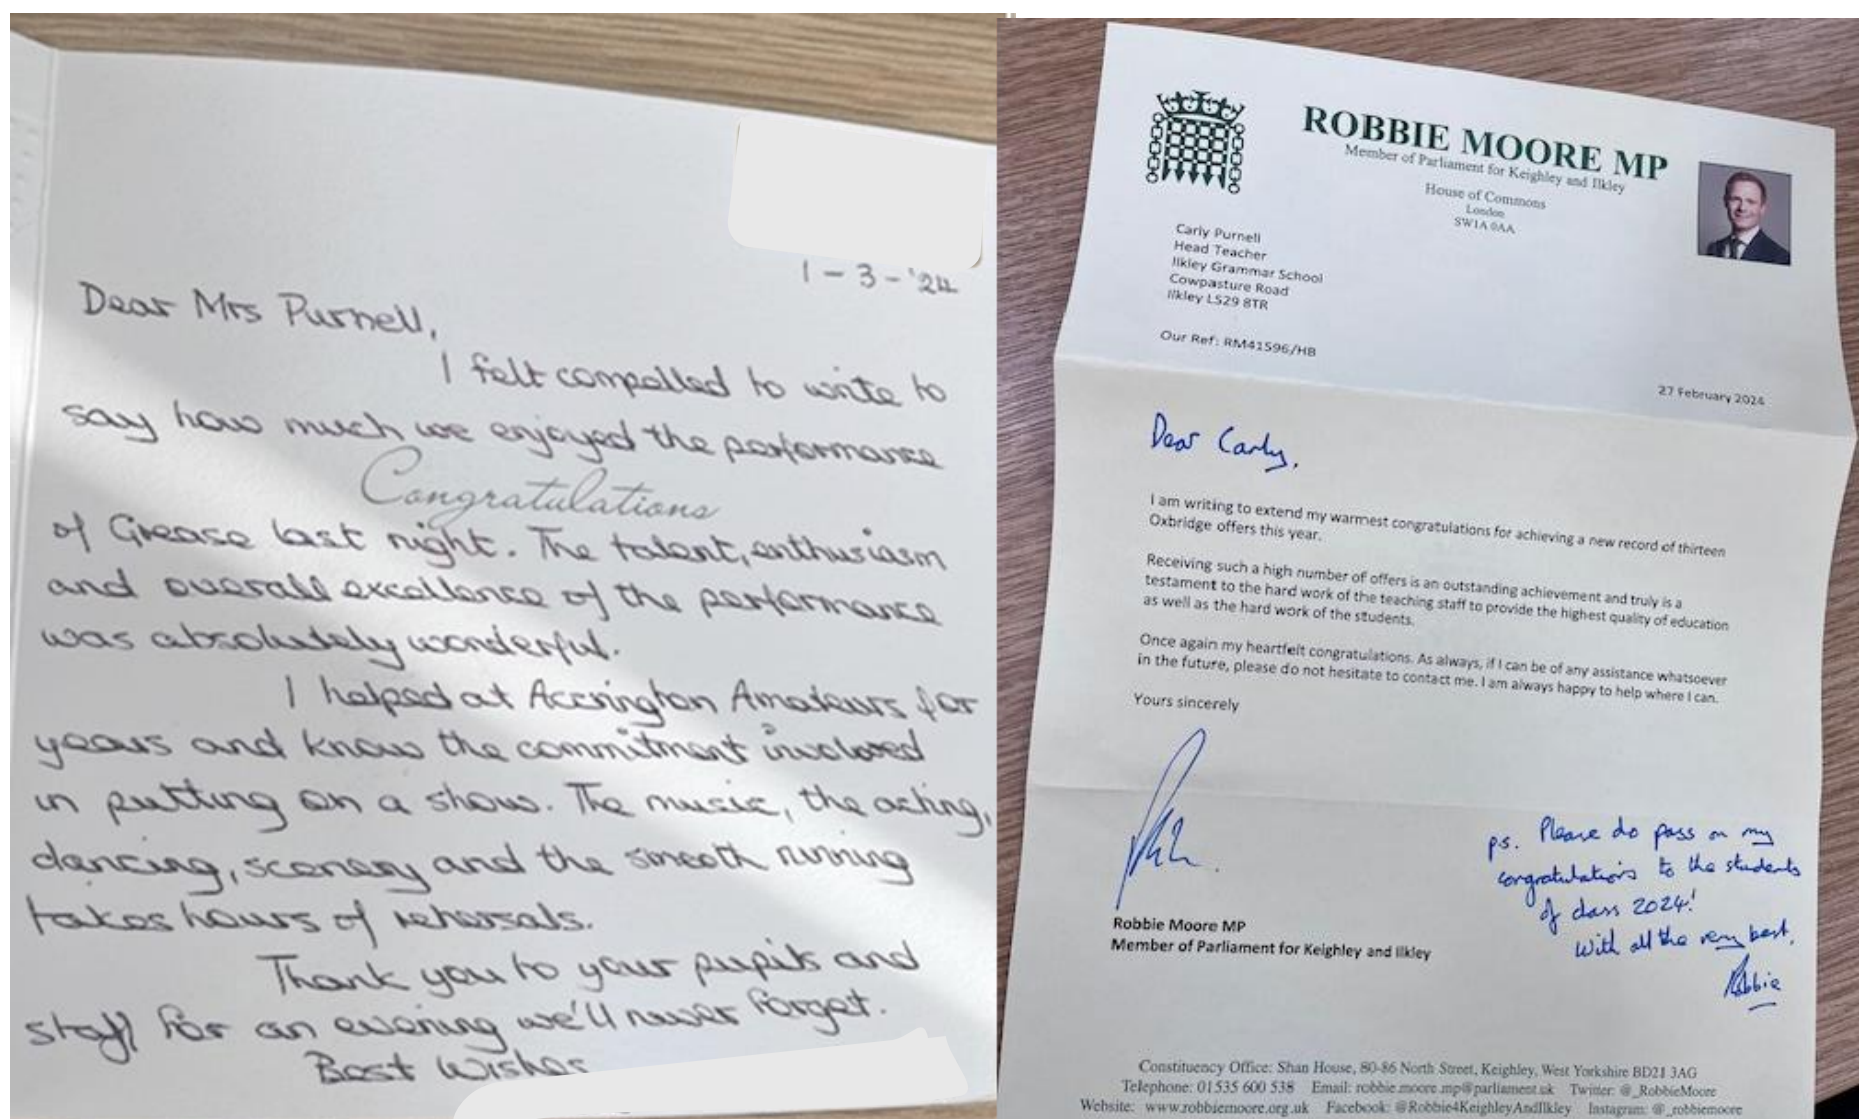 1-3-'24
Dear Mrs Purnell,
I felt compelled to write to
say how much we enjoyed the performance
Congratulations
of Grease last night. The talent, enthusiasm
and overall excellence of the performance
was absolutely wonderful.
I helped at Accrington Amateurs for
years and know the commitment involved
in putting on a show. The music, the acting,
dancing, scenery and the smooth running
takes hours of rehersals.
Thank you to your pupils and
staff for an evening we'll never forget.
Best Wishes
ROBBIE MOORE MP
Member of Parliament for Keighley and Ilkley
House of Commons
London
SW1A 0AA
Carly Purnell
Head Teacher
Ilkley Grammar School
Cowpasture Road
Ilkley LS29 8TR
Our Ref: RM41596/HB
27 February 2024
Dear Carly,
I am writing to extend my warmest congratulations for achieving a new record of thirteen
Oxbridge offers this year.
Receiving such a high number of offers is an outstanding achievement and truly is a
testament to the hard work of the teaching staff to provide the highest quality of education
as well as the hard work of the students.
Once again my heartfelt congratulations. As always, if I can be of any assistance whatsoever
in the future, please do not hesitate to contact me. I am always happy to help where I can.
Yours sincerely
Robbie Moore MP
Member of Parliament for Keighley and Ilkley
ps. Please do pass on my
congratulations to the students
of class 2024!
With all the very best,
Robbie
Constituency Office: Shan House, 80-86 North Street, Keighley, West Yorkshire BD21 3AG
Telephone: 01535 600 538 Email: robbie.moore.mp@parliament.uk Twitter: @_RobbieMoore
Website: www.robbiemoore.org.uk Facebook: @Robbie4KeighleyAndIlkley Instagram: @_robbiemoore